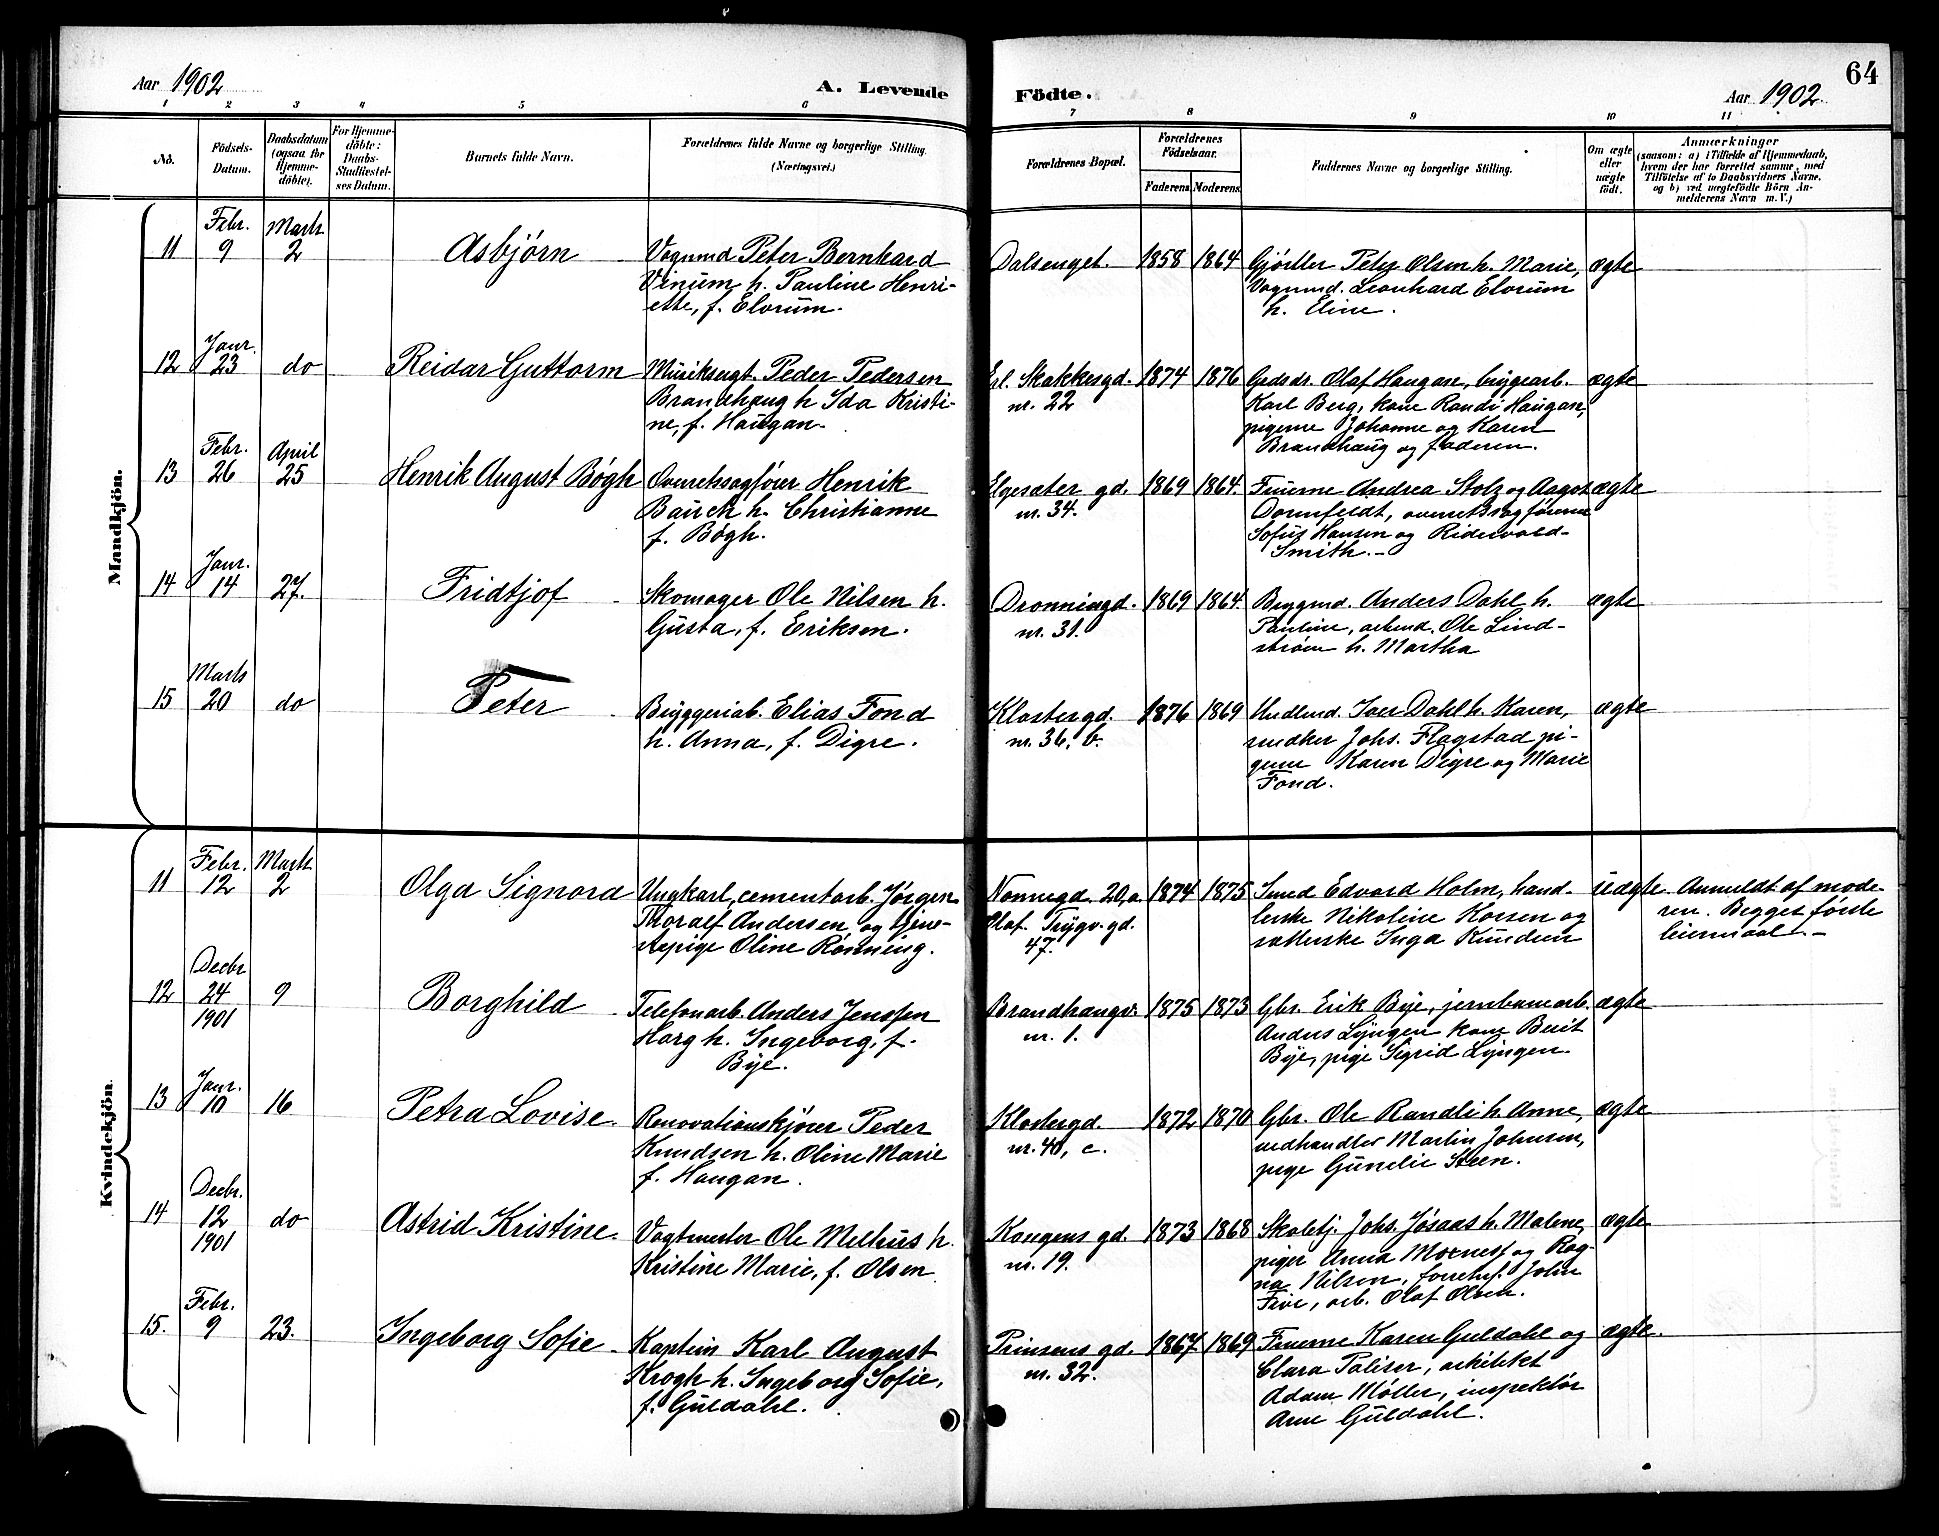 Aar 1902
A. Levende Födte.
Aar 1902.
64
1 2 3 4 5 6 7 8 9 10 11
No.
Födsels-Datum.
Daabsdatum (ogsaa for Hjemme-döbte).
For Hjemme-döbte: Daabs-Stadfæstel-ses Datum.
Barnets fulde Navn.
Forældrenes fulde Navne og borgerlige Stilling. (Næringsvei.)
Forældrenes Bopæl.
Forældrenes Födselsaar.
Faderens. Moderens.
Faddernes Navne og borgerlige Stilling.
Om ægte eller uægte födt.
Anmærkninger
(saasom: a) i Tilfælde af Hjemmedaab,
hvem der har forrettet samme, med
Tilföielse af to Daabsvidners Navne,
og b) ved uægtefödte Börn An-
melderens Navn m. V.)
Mandkjön.
11 Febr. 9 Marts 2 Asbjørn
Vognmd Peter Bernhard
Vinum h. Pauline Henri-
ette, f. Elvrum.
Dalsenget. 1858 1864
Gjørtler Peter Olsen h. Marie,
Vognmd. Leonhard Elvrum
h. Eline.
ægte
12 Janr. 23 do Reidar Guttorm
Musiksergt. Peder Pedersen
Brandhaug h Ida Kristi-
ne, f. Haugan.
Erl. Skakkesgd.
nr. 22
1874 1876
Grdsdr. Olaf Haugan, brygearb.
Karl Berg, kone Randi Haugan,
pigerne Johanne og Karen
Brandhaug og faderen.
ægte
13 Febr. 26 April 25 Henrik August Bøgh
Overretssagfører Henrik
Bauck h. Christianne
f. Bøgh.
Elgesæter gd.
nr. 34.
1869 1864.
Fruerne Andrea Stolz og Aagot
Dornfeldt, overretssagførerne
Sofus Hansen og Ridervold-
Smith.-
ægte
14 Janr. 14 27. Fridtjof
Skomager Ole Nilsen h.
Gusta, f. Eriksen.
Dronningd.
nr. 31.
1869 1864
Byggmd. Anders Dahl h.
Pauline, arbmd. Ole Lind-
strøm h. Martha
ægte
15 Marts 20 do Peter
Bryggeriab. Elias Fond
h. Anna, f. Digre.
Klostergd.
nr. 36, b.
1876 1869
Hndlmd. Iver Dahl h. Karen,
snedker Johs. Flagstad pi-
gerne Karen Digre og Marie
Fond.
ægte
Kvindekjön.
11 Febr. 12 Marts 2 Olga Signora
Ungkarl, cementarb. Jörgen
Thoralf Andersen og tjene-
stepige Oline Rønning.
Nonnegd. 20,a
Olaf Trygv. gd.
47.
1874 1875
Smed Edvard Holm, hand-
lerske Nikoline Korsen og
Inga Knudsen
uægte
Anmeldt af mode-
ren. Begges første
leiermaal.-
12 Decbr 24 1901 9 Borghild
Telefonarb. Anders Jenssen
Horg h. Ingeborg, f.
Bye.
Brandhaugv.
nr. 1.
1875 1873
Gbr. Erik Bye, jernbanearb.
Anders Lyngen kone Berit
Bye, pige Sigrid Lyngen.
ægte
13 Janr. 10 16 Petra Lovise.
Renovationskjører Peder
Knudsen h. Oline Marie
f. Haugan.
Klostergd.
nr. 40, c.
1872 1870
Gbr. Ole Randli h. Anne,
vedhandler Martin Johnsen,
pige Gunelie Steen.
ægte
14 Decbr. 12 1901 do Astrid Kristine.
Vagtmester Ole Melhus h.
Kristine Marie, f. Olsen
Kongens gd.
nr. 19.
1873 1868
Skoletj. Johs. Jøsaas h. Malene,
piger Anna Moxnest og Rag-
na Nilsen, John
Five, arb. Olaf Olsen.
ægte
15. Febr. 9 23. Ingeborg Sofie
Kaptein Karl August
Krogh h. Ingeborg Sofie,
f. Guldahl.
Prinsens gd.
nr. 32.
1867 1869
Fruerne Karen Guldahl og
Clara Paliser, arkitekt
Adam Møller, inspektør
Arne Guldahl.
ægte.